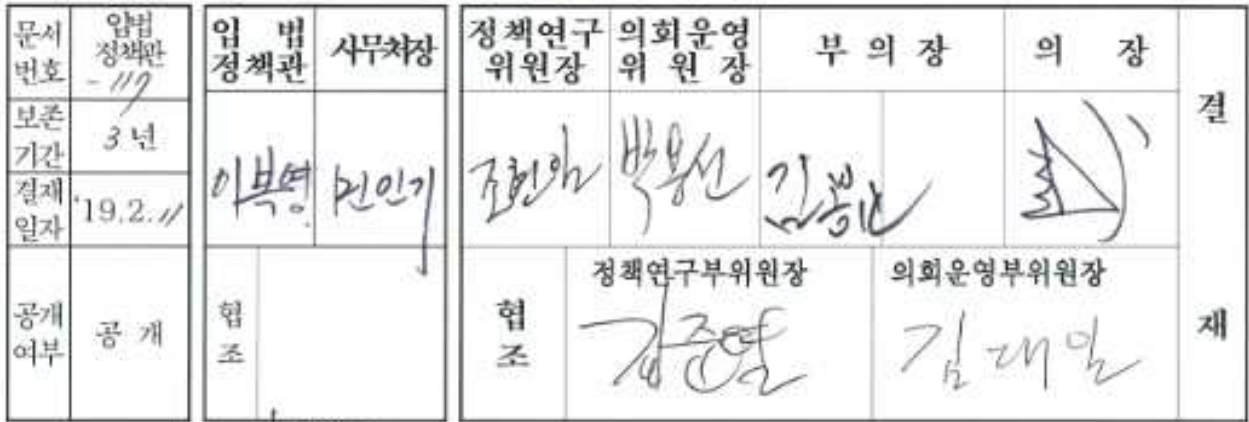 문서 번호
입법 정책관 - 117
보존 기간
3년
결재 일자
'19.2.11
공개 여부
공 개
입 법 정책관
사무처장
이복영
민인기
협 조
정책연구 위원장
의회운영 위 원 장
부 의 장
의 장
조현일
박용선
김봉교
협 조
정책연구부위원장
의회운영부위원장
김준열
김대일
결 재